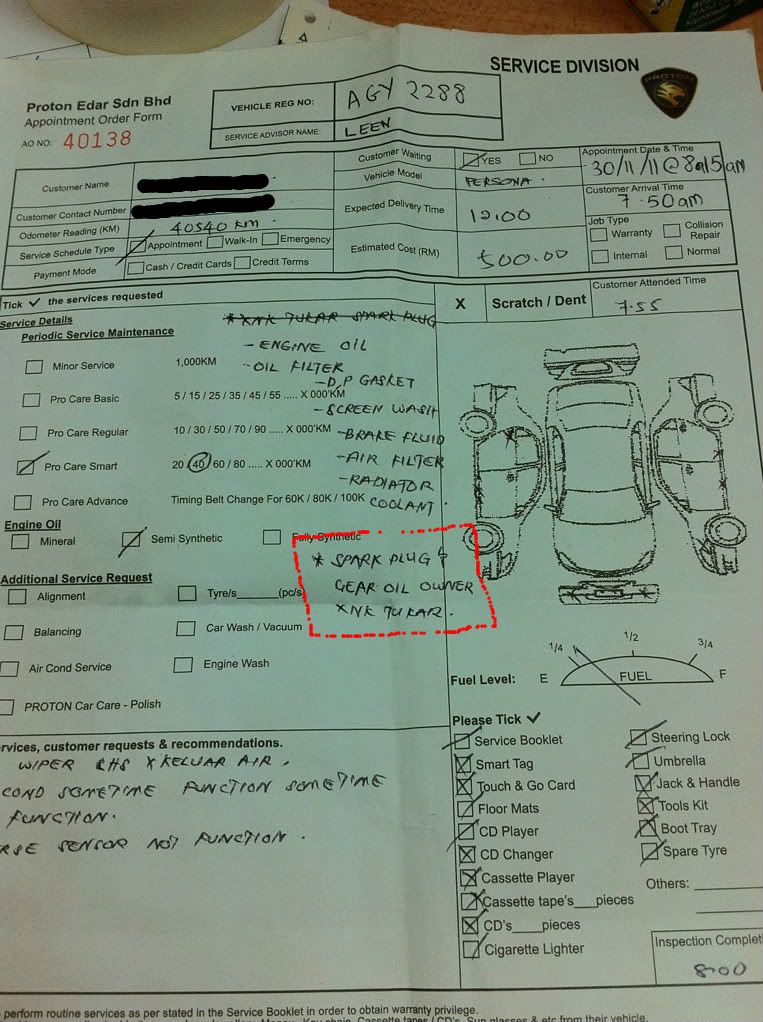 SERVICE DIVISION
PROTON
Proton Edar Sdn Bhd
Appointment Order Form
AO NO: 40138
VEHICLE REG NO: AGY 2288
SERVICE ADVISOR NAME: LEEN
Customer Name
Customer Contact Number
Odometer Reading (KM) 40540 KM
Service Schedule Type Appointment Walk-In Emergency
Payment Mode Cash / Credit Cards Credit Terms
Customer Waiting YES NO
Vehicle Model PERSONA.
Expected Delivery Time 12.00
Estimated Cost (RM) 500.00
Appointment Date & Time
30/11/11 @ 8.15 am
Customer Arrival Time
7.50am
Job Type
Warranty Collision Repair
Internal Normal
Tick ✓ the services requested
X Scratch / Dent
Customer Attended Time
7.55
Service Details
Periodic Service Maintenance
XNK TUKAR SPARK PLUG
- ENGINE OIL
Minor Service 1,000KM - OIL FILTER
- D/P GASKET
Pro Care Basic 5 / 15 / 25 / 35 / 45 / 55 ..... X 000'KM
- SCREEN WASH
Pro Care Regular 10 / 30 / 50 / 70 / 90 ..... X 000'KM - BRAKE FLUID
Pro Care Smart 20 / 40 / 60 / 80 ..... X 000'KM - AIR FILTER
- RADIATOR
Pro Care Advance Timing Belt Change For 60K / 80K / 100K COOLANT.
Engine Oil
Mineral Semi Synthetic Fully Synthetic
* SPARK PLUG &
GEAR OIL OWNER
XNK TUKAR.
Additional Service Request
Alignment Tyre/s______(pc/s
Balancing Car Wash / Vacuum
Air Cond Service Engine Wash
PROTON Car Care - Polish
1/4 1/2 3/4
Fuel Level: E FUEL F
rvices, customer requests & recommendations.
WIPER RHS X KELUAR AIR.
COND SOMETIME FUNCTION SOMETIME
FUNCTION.
RSE SENSOR NOT FUNCTION.
Please Tick ✓
Service Booklet Steering Lock
Smart Tag Umbrella
Touch & Go Card Jack & Handle
Floor Mats Tools Kit
CD Player Boot Tray
CD Changer Spare Tyre
Cassette Player Others:
Cassette tape's___pieces
CD's____pieces
Cigarette Lighter
Inspection Complet
8.00
perform routine services as per stated in the Service Booklet in order to obtain warranty privilege.